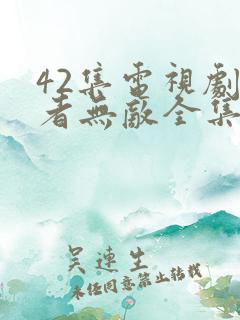 42集電視劇
者無敵全集
吴連生
未任同意禁止转载